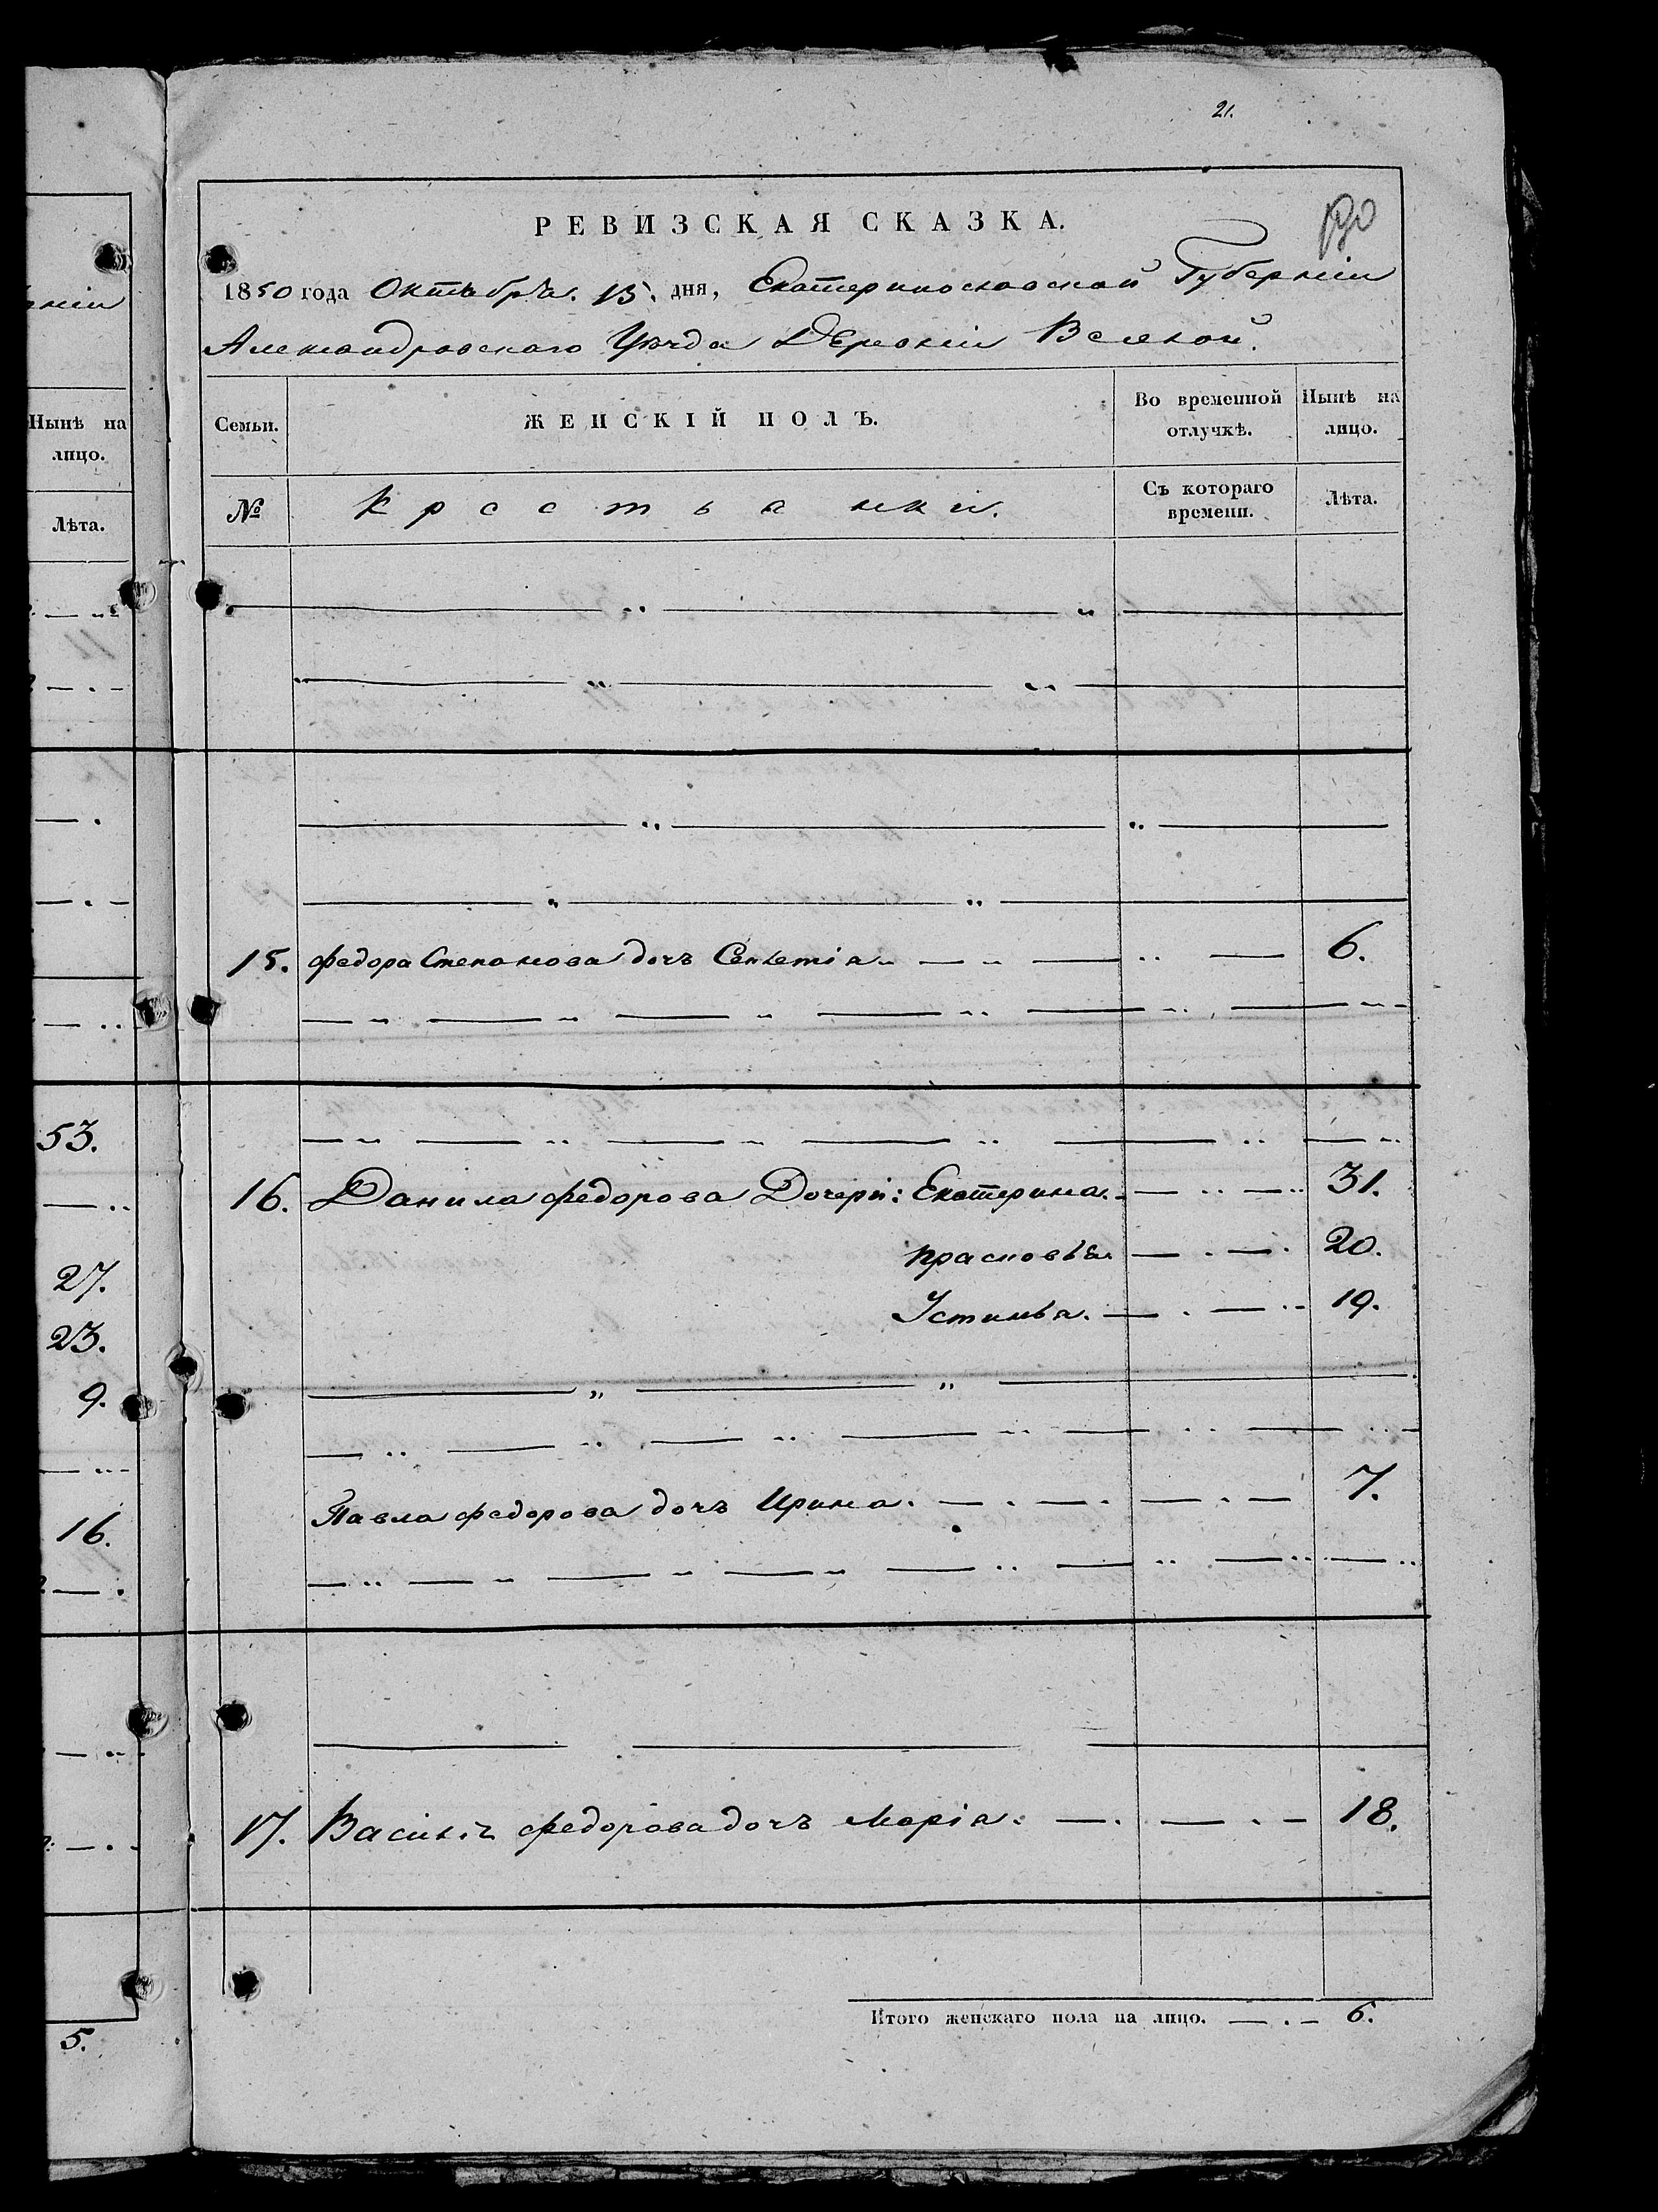 21.
190
РЕВИЗСКАЯ СКАЗКА.
1850 года Октября. 15. дня, Екатеринославской Губерніи
Александровскаго Уѣзда Деревни
Семьи.
ЖЕНСКІЙ ПОЛЪ.
Во временной отлучкѣ.
Нынѣ на лицо.
№
Крестьянки.
Съ котораго времени.
Лѣта.
15. Федора Степанова дочь 6.
16. Данила Федорова Дочери: Екатерина. 31.
Прасковья 20.
Устинья. 19.
Павла Федорова дочь Ирина. 7.
17. Федорова дочь Марія. 18.
Итого женскаго пола на лицо. 6.
ніи
Нынѣ на
лицо.
Лѣта.
53.
27.
23.
9.
16.
5.